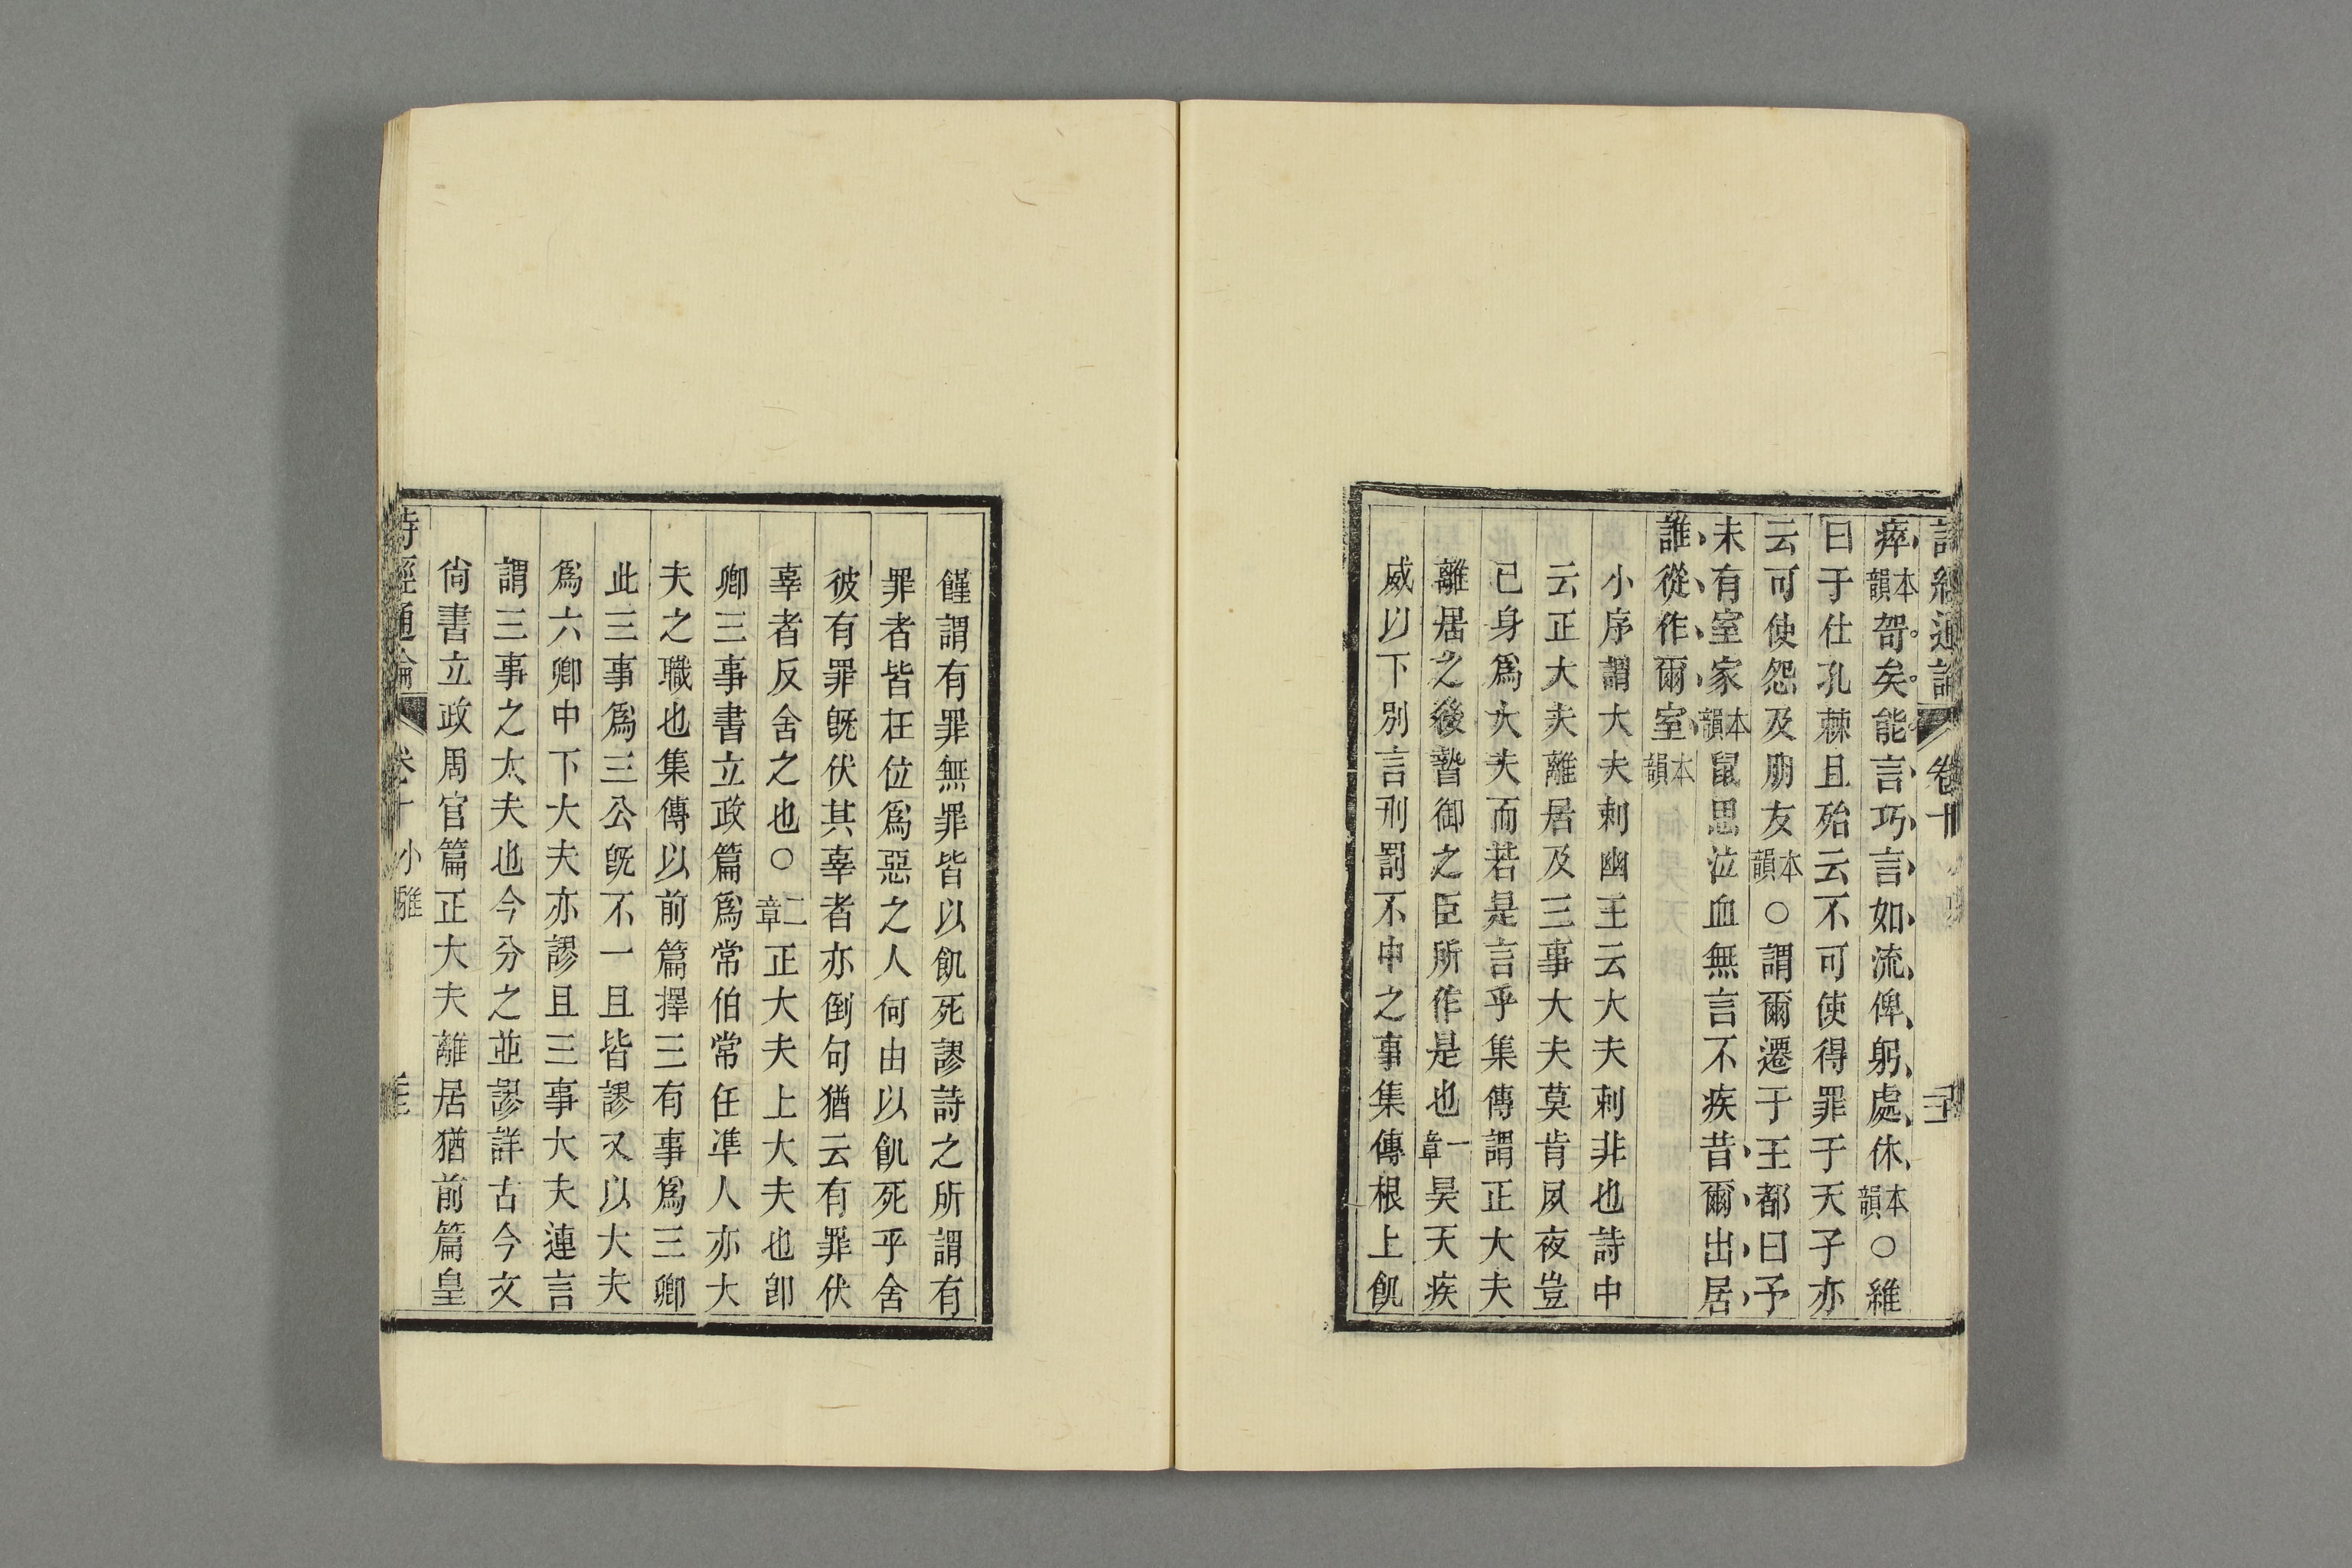 瘁本韻哿矣能言巧言如流俾躬處休本韻○維
曰于仕孔棘且殆云不可使得罪于天子亦
云可使怨及朋友本韻○謂爾遷于王都曰予
未有室家本韻鼠思泣血無言不疾昔爾出居
誰從作爾室本韻
小序謂大夫刺幽王云大夫刺非也詩中
云正大夫離居及三事大夫莫肯夙夜豈
已身爲大夫而若是言乎集傳謂正大夫
離居之後暬御之臣所作是也一章昊天疾
威以下別言刑罰不中之事集傳根上飢
饉謂有罪無罪皆以飢死謬詩之所謂有
罪者皆在位爲惡之人何由以飢死乎舍
彼有罪旣伏其辜者亦倒句猶云有罪伏
辜者反舍之也○二章正大夫上大夫也卽
卿三事書立政篇爲常伯常任準人亦大
夫之職也集傳以前篇擇三有事爲三卿
此三事爲三公旣不一且皆謬又以大夫
爲六卿中下大夫亦謬且三事大夫連言
謂三事之大夫也今分之並謬詳古今文
尙書立政周官篇正大夫離居猶前篇皇
詩經通論 卷十 小雅